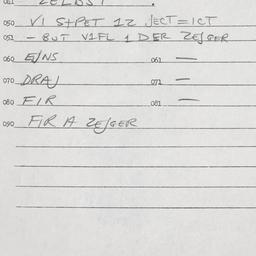 050 VI StPET 12 JECT=ICT
051 - BUT VIFL 1 DER ZEJGER
060 EJNS 061 —
070 DRAJ 071 —
080 FIR 081 —
090 FIR A ZEJGER